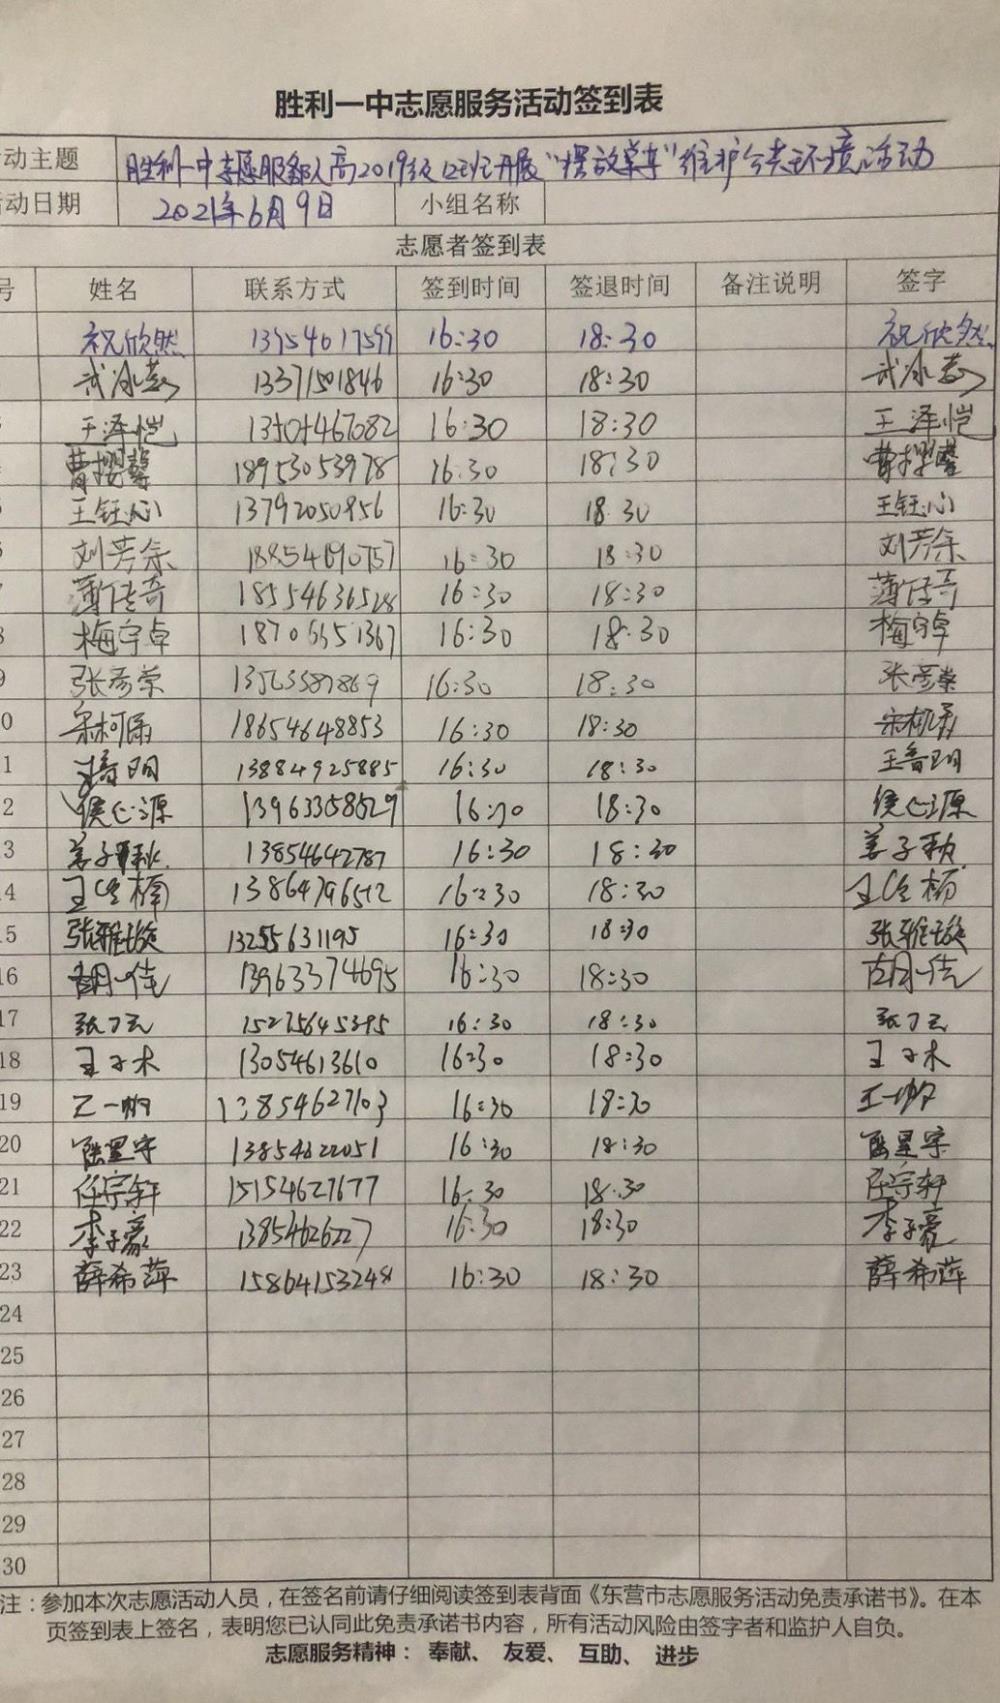 胜利一中志愿服务活动签到表
动主题 胜利一中志愿服务队高2019级12班开展"摆放单车"维护公共环境活动
动日期 2021年6月9日 小组名称
志愿者签到表
号 姓名 联系方式 签到时间 签退时间 备注说明 签字
祝欣然 13954617599 16:30 18:30 祝欣然
武冰蕊 13371501846 16:30 18:30 武冰蕊
王泽恺 16:30 18:30 王泽恺
曹樱馨 18953053978 16:30 18:30 曹樱馨
王钰心 13792050856 16:30 18:30 王钰心
刘芳余 18854690757 16:30 18:30 刘芳余
薄传奇 18554636528 16:30 18:30 薄传奇
8 梅宇卓 18706651367 16:30 18:30 梅宇卓
9 张彦荣 13563587869 16:30 18:30 张彦荣
0 宋柯雨 18654648853 16:30 18:30
1 13884925885 16:30 18:30 王音明
2 侯心源 13963358529 16:30 18:30 侯心源
3 姜子秋 13854642787 16:30 18:30 姜子秋
4 13864796512 16:30 18:30
5 张雅璇 13255631195 16:30 18:30 张雅璇
16 胡一佳 13963374695 16:30 18:30 胡一佳
17 15275645395 16:30 18:30
18 王子木 13054613610 16:30 18:30 王子木
19 王一帆 13854627103 16:30 18:30 王一帆
20 13854622051 16:30 18:30
21 任宇轩 15154627677 16:30 18:30 任宇轩
22 李子豪 13854626227 16:30 18:30 李子豪
23 薛希萍 15864153248 16:30 18:30 薛希萍
24
25
26
27
28
29
30
注：参加本次志愿活动人员，在签名前请仔细阅读签到表背面《东营市志愿服务活动免责承诺书》。在本
页签到表上签名，表明您已认同此免责承诺书内容，所有活动风险由签字者和监护人自负。
志愿服务精神： 奉献、 友爱、 互助、 进步